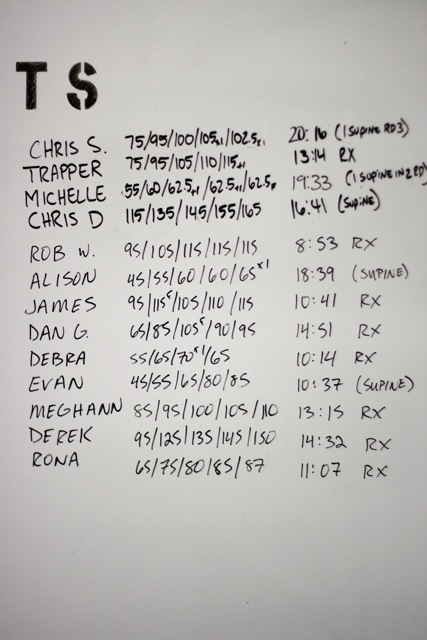 T S
CHRIS S. 75/95/100/105x1/102.5x1 20:16 (1 SUPINE RD3)
TRAPPER 75/95/105/110/115x1 13:14 RX
MICHELLE 55/60/62.5x1/62.5x1/62.5x 19:33 (1 SUPINE IN 2 RD)
CHRIS D 115/135/145/155/165 16:41 (SUPINE)
ROB W. 95/105/115/115/115 8:53 RX
ALISON 45/55/60/60/65x1 18:39 (SUPINE)
JAMES 95/115c/105/110/115 10:41 RX
DAN G. 65/85/105c/90/95 14:51 RX
DEBRA 55/65/70x1/65 10:14 RX
EVAN 45/55/65/80/85 10:37 (SUPINE)
MEGHANN 85/95/100/105/110 13:15 RX
DEREK 95/125/135/145/150 14:32 RX
RONA 65/75/80/85/87 11:07 RX